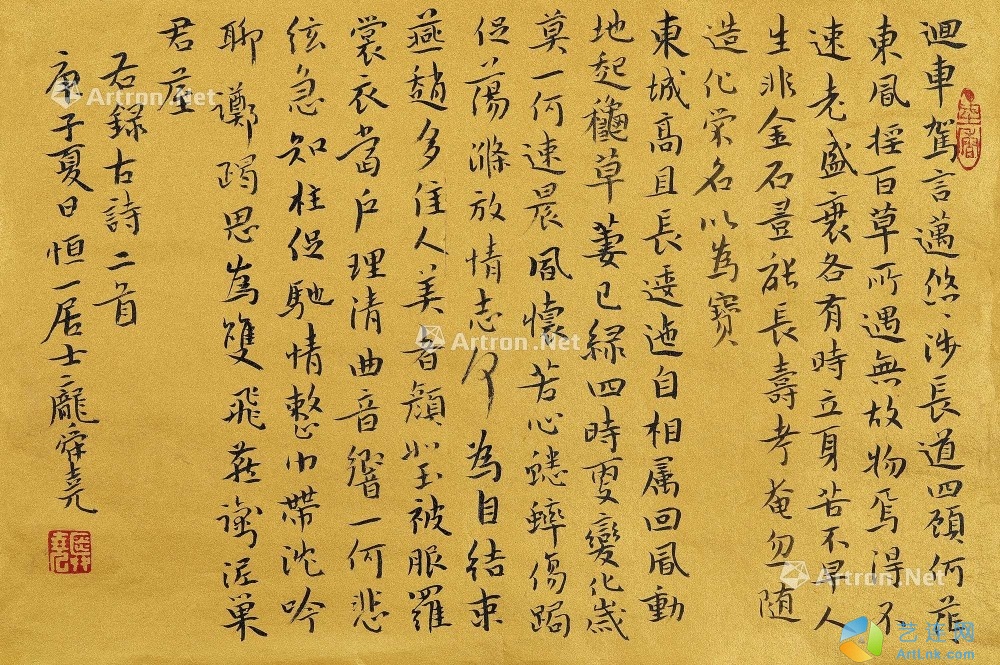 迴車駕言邁悠〻涉長道四顧何茫
東風揺百草所遇無故物焉得不
速老盛衰各有時立身苦不早人
生非金石豈能長壽考奄忽随
造化榮名以為寶
東城高且長逶迤自相属回風動
地起穐草萋已緑四時更變化歲
莫一何速晨風懷苦心蟋蟀傷跼
促蕩滌放情志何為自結束
燕趙多佳人美者顔如玉被服羅
裳衣當户理清曲音響一何悲
弦急知柱促馳情整巾帶沈吟
聊躑躅思為雙飛燕銜泥巢
君屋
右錄古詩二首
庚子夏日恒一居士龐舜堯
Artron.Net
Artron.Net
Artron.Net
Artron.Net
艺连网
ArtLnk.com